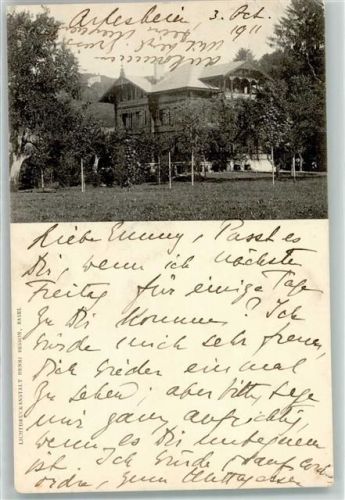 Arlesheim, 3. Oct.
1911
Liebe Emmy, Passt es
Dir, wenn ich nächsten
Freitag für einige Tage
zu Dir komme? Ich
würde mich sehr freuen,
Dich wieder einmal
zu sehen; aber bitte sage
mir ganz aufrichtig,
wenn es Dir unbequem
ist. Ich würde, dann
ordre, zum Mittagessen
LICHTDRUCKANSTALT HENRI BESSON, BASEL